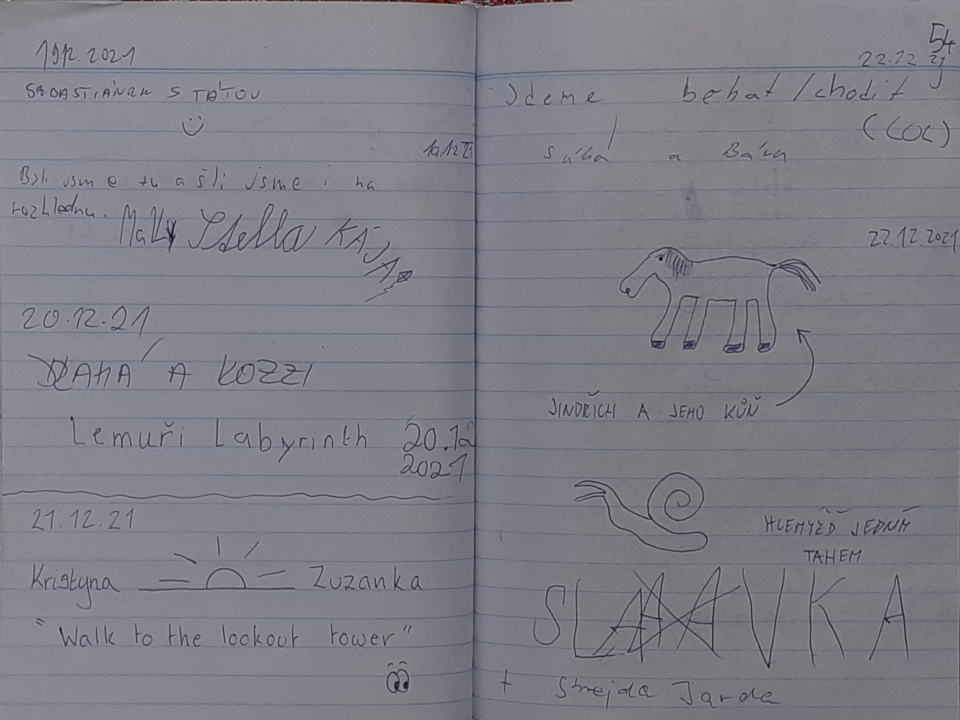 19.12.2021
SEBASTIÁNEK S TÁTOU
19.12.21
Byli jsme tu a šli jsme i na
rozhlednu.
Maky Stella KÁJA
20.12.21
DRAHÁ A KOZZI
Lemuři Labyrinth 20.12
2021
21.12.21
Kristyna Zuzanka
"Walk to the lookout tower"
54
22.12 21
Jdeme běhat / chodit
(COC)
Sába a Bára
22.12.2021
JINDŘICH A JEHO KŮŇ
HLEMÝŽĎ JEDNÍM
TAHEM
SLAVKA
+ Strejda Jarda